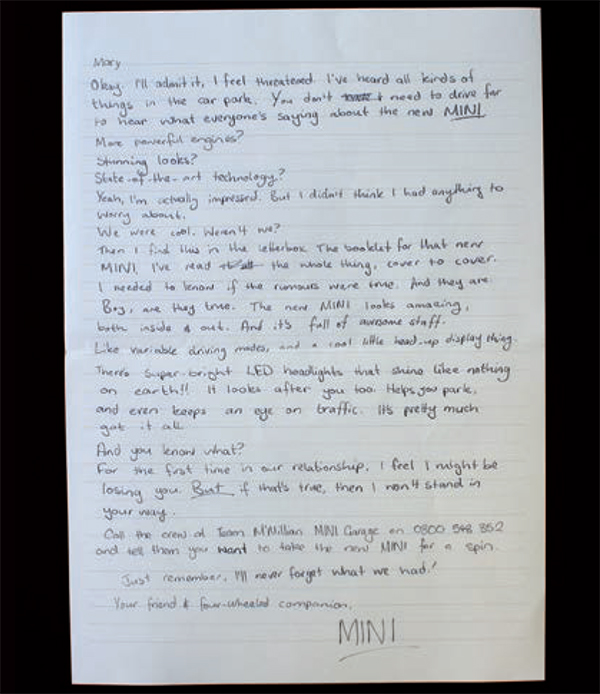 Mary
Okay. I'll admit it, I feel threatened. I've heard all kinds of
things in the car park. You don't need to drive far
to hear what everyone's saying about the new MINI.
More powerful engines?
Stunning looks?
State-of-the-art technology?
Yeah, I'm actually impressed. But I didn't think I had anything to
worry about.
We were cool. Weren't we?
Then I find this in the letterbox. The booklet for that new
MINI. I've read the whole thing, cover to cover.
I needed to know if the rumours were true. And they are.
Boy, are they true. The new MINI looks amazing,
both inside & out. And it's full of awesome stuff.
Like variable driving modes, and a cool little head-up display thing.
There's super-bright LED headlights that shine like nothing
on earth!! It looks after you too. Helps you park,
and even keeps an eye on traffic. It's pretty much
got it all.
And you know what?
For the first time in our relationship, I feel I might be
losing you. But if that's true, then I won't stand in
your way.
Call the crew at Team McWillian MINI Garage on 0800 548 852
and tell them you want to take the new MINI for a spin.
Just remember, I'll never forget what we had!
Your friend & four-wheeled companion,
MINI